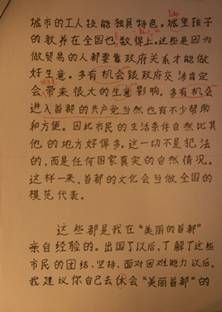 城市的工人技能独具特色。城里孩子
的教养在全国也数得上。这些是因为
做贸易的人都要靠政府关系才能做
好生意。多有机会跟政府交涉肯定
会带来很大的生意影响。多有机会
进入首都的共产党当然也有不少帮助
和方便。因此市民的生活条件自然比其
他的地方好得多。这一切不是犯法
的,而是任何国家真实的自然情况。
这样一来,首都的文化会当做全国的
模范代表。
这些都是我在“美丽的首都”
亲自经验的。出国了以后,了解了这些
市民的团结、坚持、面对困难能力以后,
我建议你自己去体会“美丽首都”的